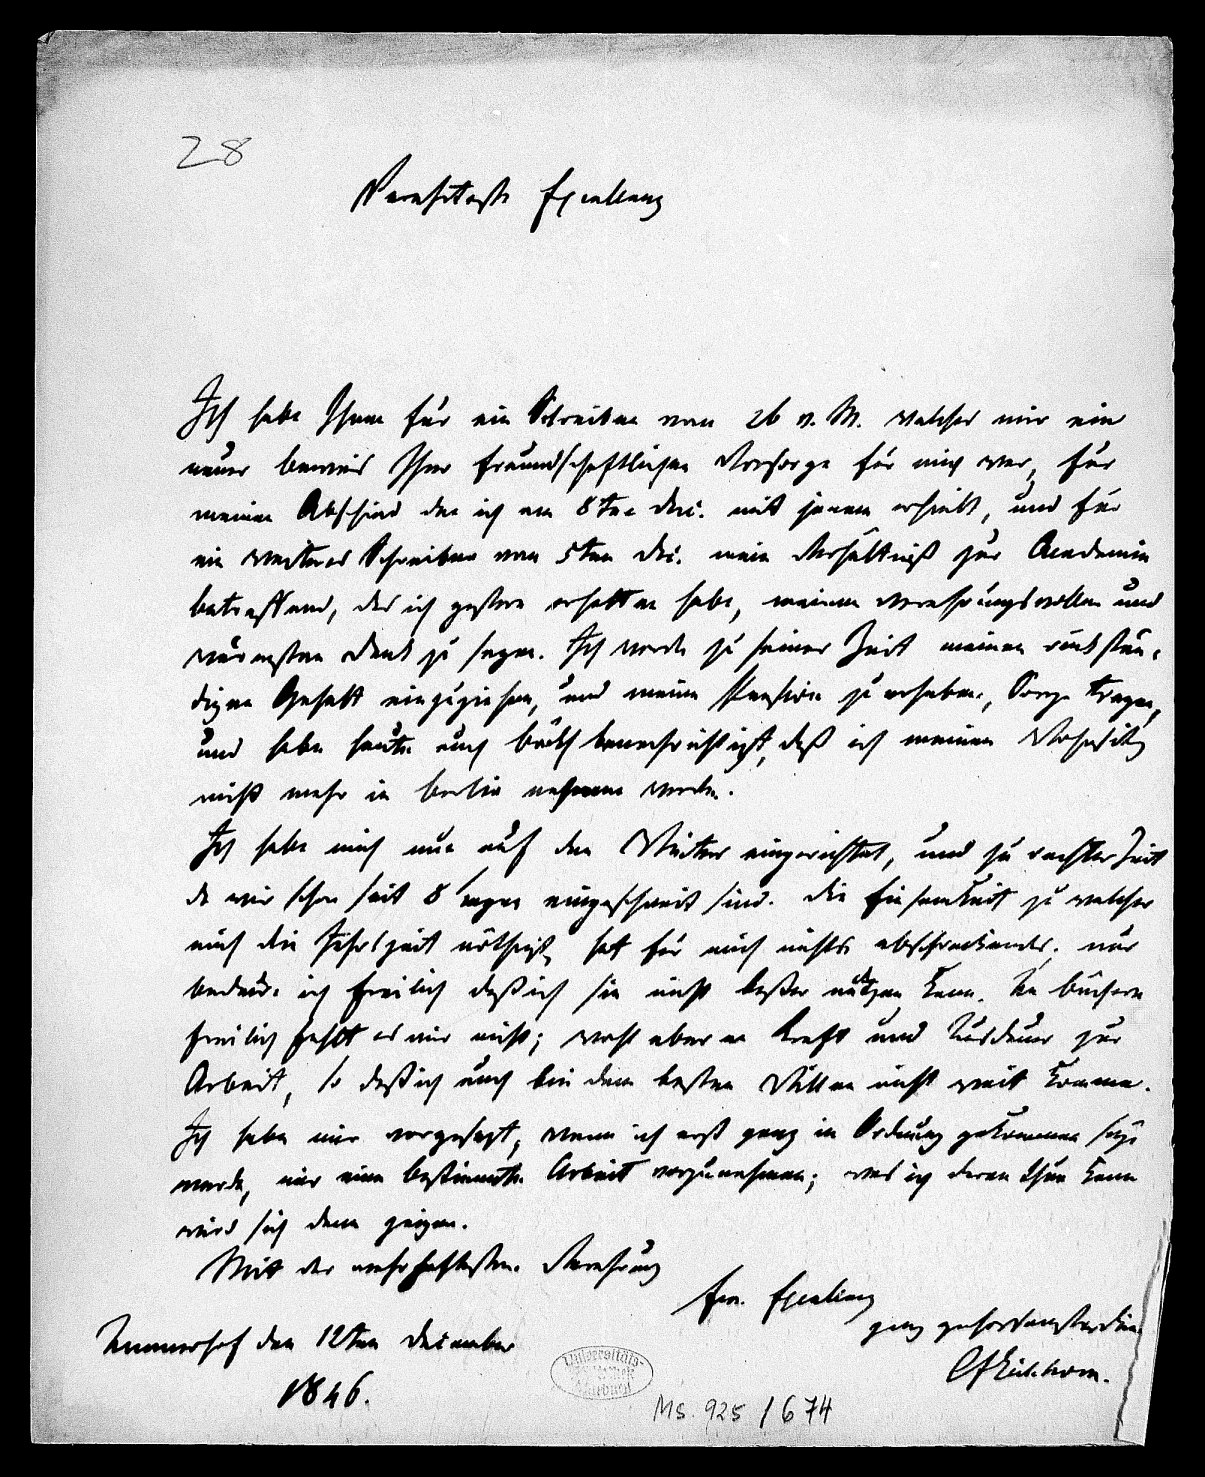 28
Verehrteste Excellenz
Ich habe Ihnen für ein Schreiben vom 26 v. M. welches mir ein
neuer beweis Ihrer freundschaftlichen Vorsorge für mich war, für
meinen Abschied den ich am 8ten Dec. mit jenem erhielt, und für
ein weiteres Schreiben vom 5ten Dec. mein Verhältniß zur Academie
betreffend, das ich gestern erhalten habe, meinen verehrungsvollen und
wärmsten Dank zu sagen. Ich werde zu seiner Zeit meinen rückstän-
digen Gehalt einzuziehen, und meine Pension zu erheben, Sorge tragen,
und habe heute auch böckh benachrichtigt, daß ich meinen Wohnsitz
nicht mehr in berlin nehmen werde.
Ich habe mich nun auf den Winter eingerichtet, und zu rechter Zeit
da wir schon seit 8 Tagen eingeschneit sind. Die Einsamkeit zu welcher
mich die Jahrszeit nöthigt, hat für mich nichts abschreckendes; nur
bedaure ich freilich daß ich sie nicht beßer nützen kann. An büchern
freilich fehlt es mir nicht; wohl aber an Kraft und Ausdauer zur
Arbeit, so daß ich auch bei dem besten Willen nicht weit komme.
Ich habe mir vorgesezt, wenn ich erst ganz in Ordnung gekommen seyn
werde, mir eine bestimmte Arbeit vorzunehmen; was ich daran thun kann
wird sich dann zeigen.
Mit der wahrhaftesten Verehrung
Ew. Excellenz
ganz gehorsamster Diener
CFEichhorn.
Ammerhof den 12ten December
1846.
Universitäts-
Bibliothek
Marburg
Ms. 925/674